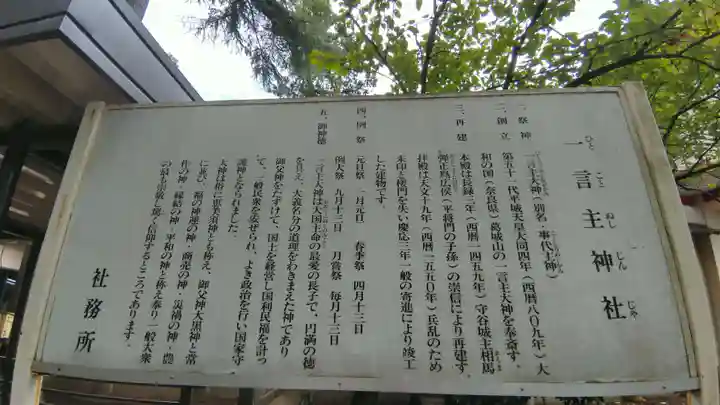 一言主神社
ひとことぬしじんじゃ
一、祭神　一言主大神(別名・事代主神)
二、創立　第五十一代平城天皇大同四年(西暦八〇九年)大
和の国(奈良県)葛城山の一言主大神を奉斎す。
三、再建　本殿は長禄三年(西暦一四五九年)守谷城主相馬
弾正胤広依(平将門の子孫)の崇信により再建す。
拝殿は天文十九年(西暦一五五〇年)兵乱のため
朱印と楼門を失い慶応三年一般の寄進により竣工
した建物です。
四、例祭　元旦祭　一月元日　春季祭　四月十三日
例大祭　九月十三日　月賞祭　毎月十三日
五、御神徳　一言主大神は大国主命の最愛の長子で、円満の徳
を具え、大義名分の道理をわきまえた神であり
御父神をたすけて、国土を経営し国利民福を計っ
て、一般民衆を愛せられ、よき政治を行い国家守
護神となられました。
大神は俗に恵美須神とも称え、御父神大黒神と常
に並び、福の神運の神、商売の神　災禍の神　農
作の神　縁結の神　平和の神と称え奉り一般大衆
の最も崇敬し篤く信仰するところであります。
社務所